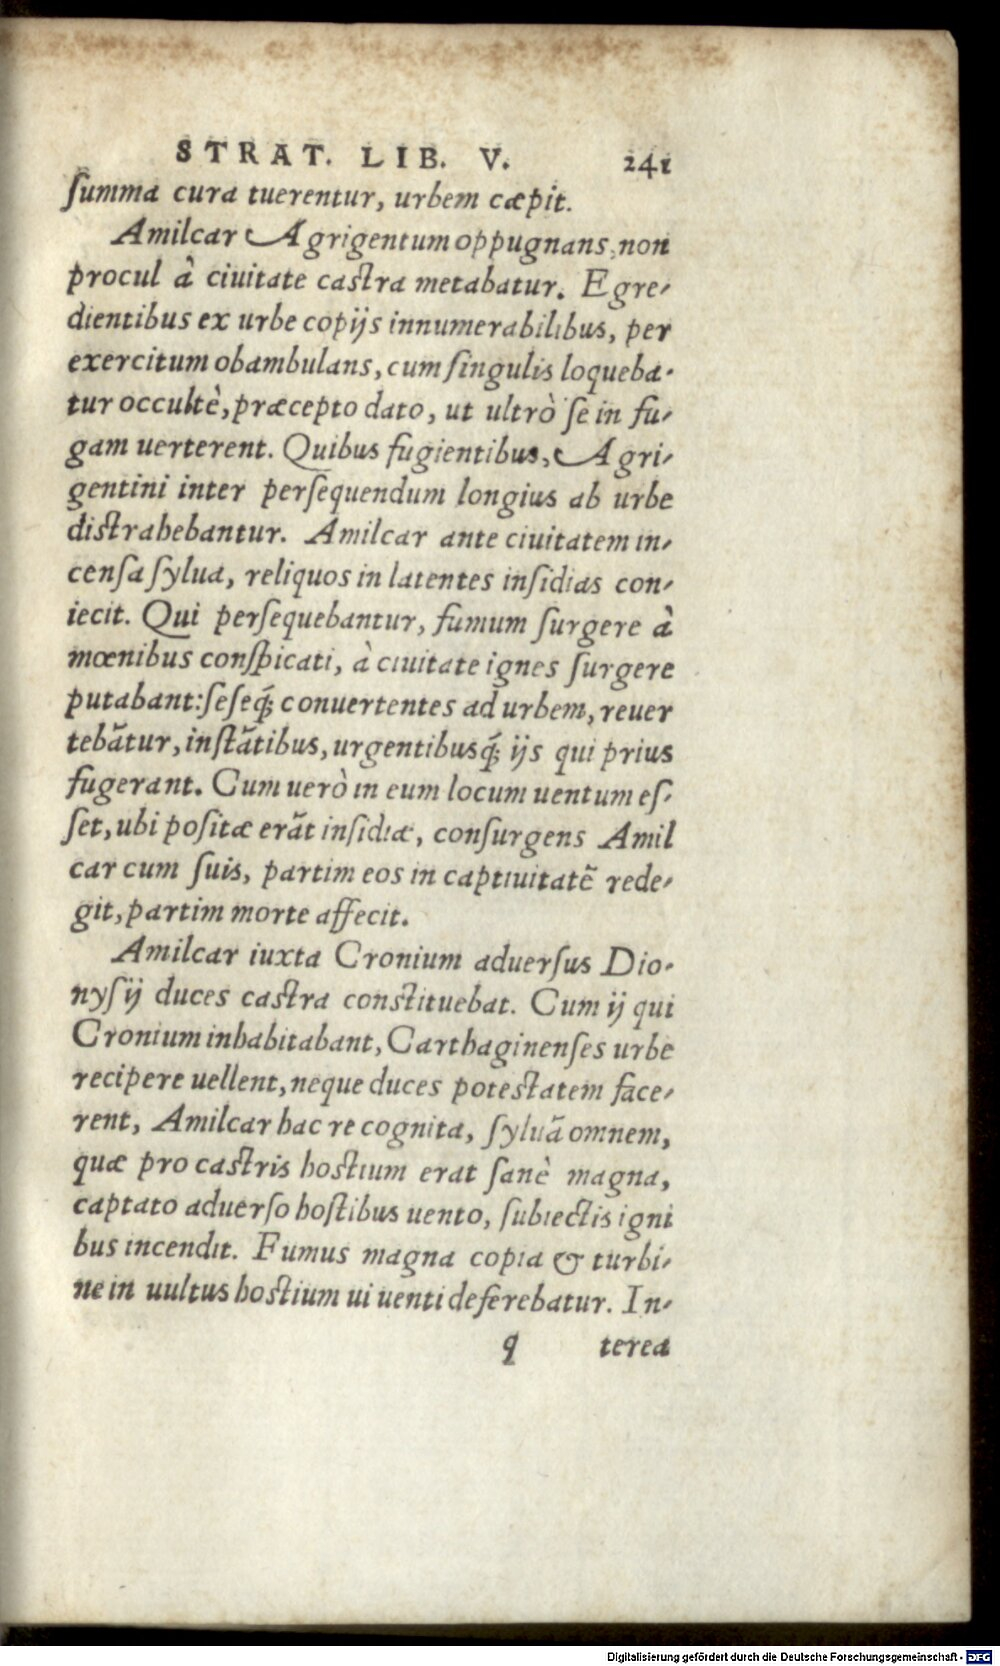 STRAT. LIB. V. 241
ſumma cura tuerentur, urbem cæpit.
Amilcar Agrigentum oppugnans, non
procul â ciuitate caſtra metabatur. Egre-
dientibus ex urbe copijs innumerabilibus, per
exercitum obambulans, cum ſingulis loqueba-
tur occultè, præcepto dato, ut ultrò ſe in fu-
gam uerterent. Quibus fugientibus, Agri-
gentini inter perſequendum longius ab urbe
diſtrahebantur. Amilcar ante ciuitatem in-
cenſa ſylua, reliquos in latentes inſidias con-
iecit. Qui perſequebantur, fumum ſurgere à
mœnibus conſpicati, à ciuitate ignes ſurgere
putabant: ſeſeq́; conuertentes ad urbem, reuer
tebãtur, inſtãtibus, urgentibusq́; ijs qui prius
fugerant. Cum uerò in eum locum uentum eſ-
ſet, ubi poſitæ erãt inſidiæ, conſurgens Amil
car cum ſuis, partim eos in captiuitatẽ rede-
git, partim morte affecit.
Amilcar iuxta Cronium aduerſus Dio-
nyſij duces caſtra conſtituebat. Cum ij qui
Cronium inhabitabant, Carthaginenſes urbe
recipere uellent, neque duces poteſtatem face-
rent, Amilcar hac re cognita, ſyluã omnem,
quæ pro caſtris hoſtium erat ſanè magna,
captato aduerſo hoſtibus uento, ſubiectis igni
bus incendit. Fumus magna copia & turbi-
ne in uultus hoſtium ui uenti deferebatur. In-
q terea
Digitalisierung gefördert durch die Deutsche Forschungsgemeinschaft - DFG